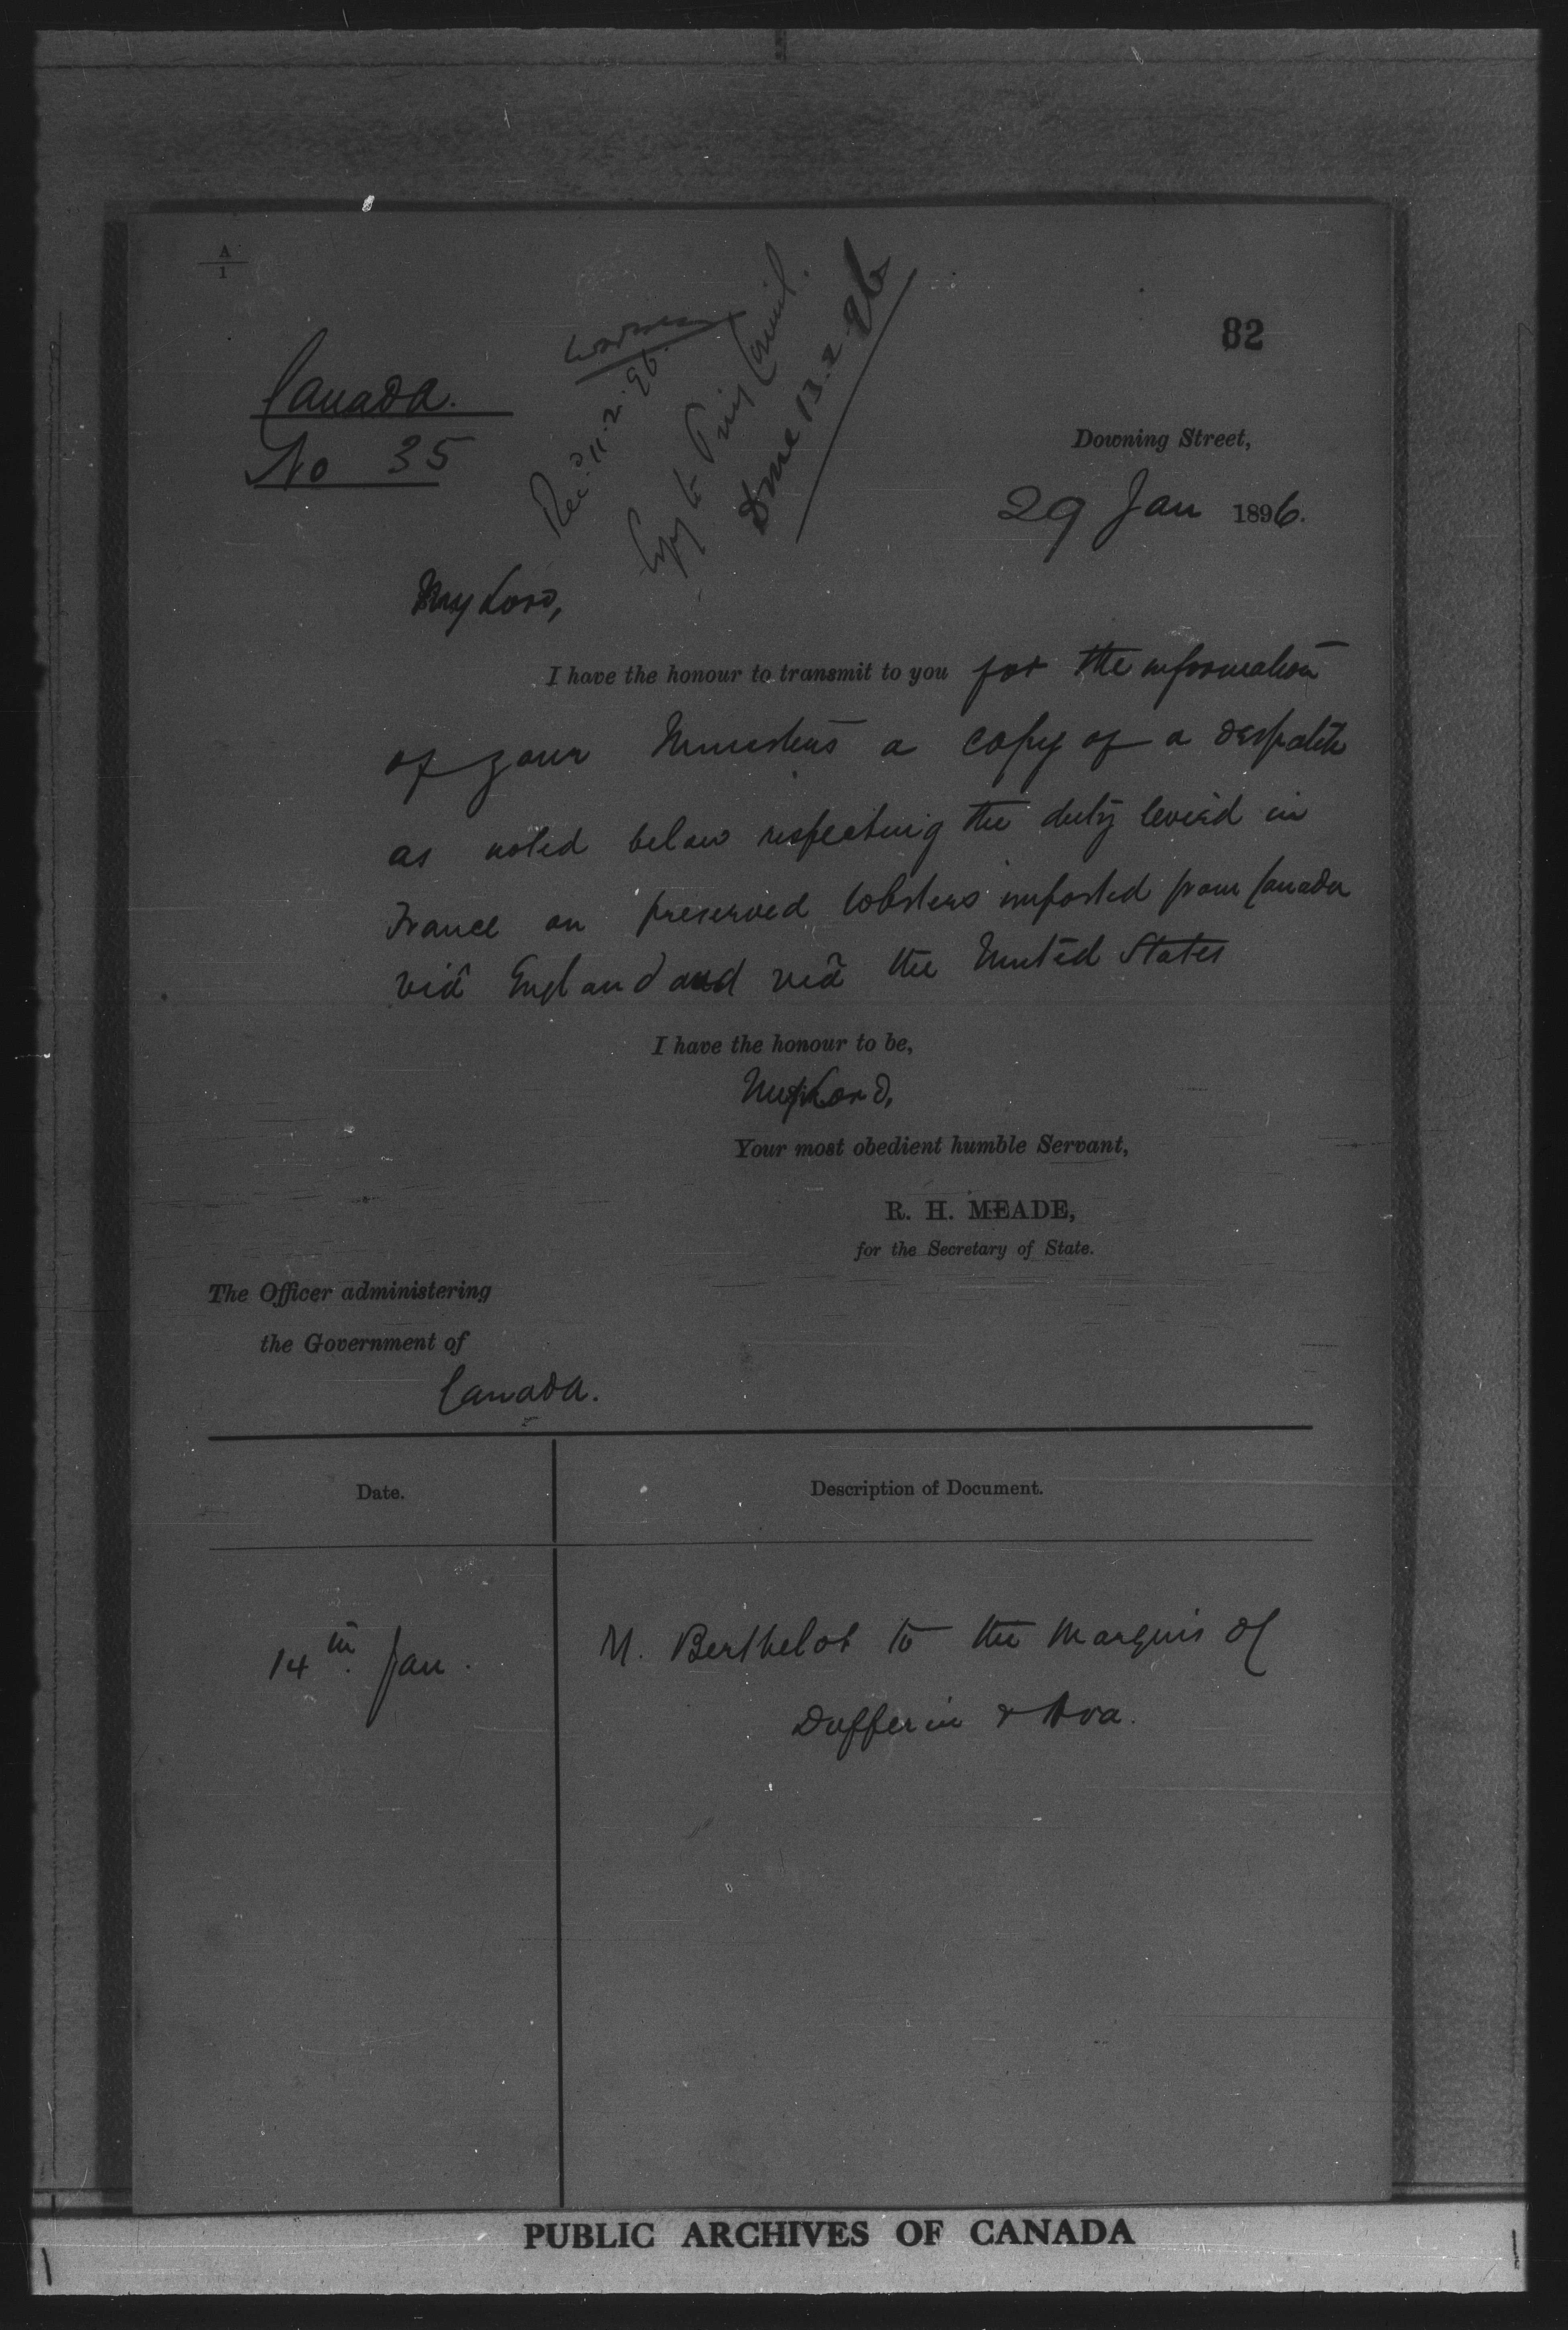 A
1
82
Canada.
No 35
Rec. 11.2.96.
Copy to Privy Council.
Done 13.2.96
Downing Street,
29 Jan 1896.
My Lord,
I have the honour to transmit to you for the information
of your Ministers a copy of a despatch
as noted below respecting the duty levied in
France on preserved lobsters imported from Canada
viâ England and viâ the United States
I have the honour to be,
My Lord,
Your most obedient humble Servant,
R. H. MEADE,
for the Secretary of State.
The Officer administering
the Government of
Canada.
Date.
Description of Document.
14th Jan.
M. Berthelot to the Marquis of
Dufferin & Ava.
PUBLIC ARCHIVES OF CANADA